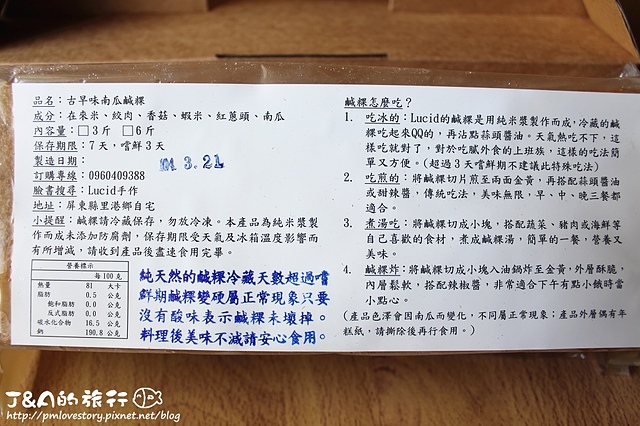 品名：古早味南瓜鹹粿
成分：在來米、絞肉、香菇、蝦米、紅蔥頭、南瓜
內容量：□3斤 □6斤
保存期限：7天，嘗鮮3天
製造日期： 3.21
訂購專線：0960409388
臉書搜尋：Lucid手作
地址：屏東縣里港鄉自宅
小提醒：鹹粿請冷藏保存，勿放冷凍。本產品為純米漿製
作而成未添加防腐劑，保存期限受天氣及冰箱溫度影響而
有所增減，請收到產品後盡速食用完畢。
營養標示
每100克
熱量 81 大卡
脂肪 0.5 公克
飽和脂肪 0.0 公克
反式脂肪 0.0 公克
碳水化合物 16.5 公克
鈉 190.8 公克
純天然的鹹粿冷藏天數超過嚐
鮮期鹹粿變硬屬正常現象只要
沒有酸味表示鹹粿未壞掉。
料理後美味不減請安心食用。
鹹粿怎麼吃？
1. 吃冰的：Lucid的鹹粿是用純米漿製作而成，冷藏的鹹
粿吃起來QQ的，再沾點蒜頭醬油。天氣熱吃不下，這
樣吃就對了，對於吃膩外食的上班族，這樣的吃法簡
單又方便。(超過3天嘗鮮期不建議此特殊吃法)
2. 吃煎的：將鹹粿切片煎至兩面金黃，再搭配蒜頭醬油
或甜辣醬，傳統吃法，美味無限，早、中、晚三餐都
適合。
3. 煮湯吃：將鹹粿切成小塊，搭配蔬菜、豬肉或海鮮等
自己喜歡的食材，煮成鹹粿湯，簡單的一餐，營養又
美味。
4. 鹹粿炸：將鹹粿切成小塊入油鍋炸至金黃，外層酥脆，
內層鬆軟，搭配辣椒醬，非常適合下午有點小餓時當
小點心。
(產品色澤會因南瓜而變化，不同屬正常現象；產品外層偶有年
糕紙，請撕除後再行食用。)
J&A的旅行
http://pmlovestory.pixnet.net/blog